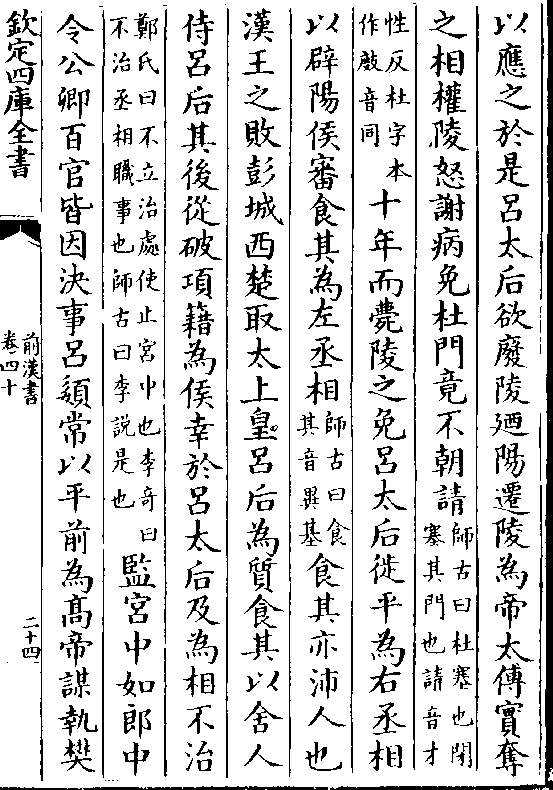 以應之於是呂太后欲廢陵廼陽遷陵為帝太傅實奪
之相權陵怒謝病免杜門竟不朝請師古曰杜塞也閉塞其門也請音才
性反杜字本作敱音同十年而薨陵之免呂太后徙平為右丞相
以辟陽侯審食其為左丞相師古曰食其音異基食其亦沛人也
漢王之敗彭城西楚取太上皇呂后為質食其以舍人
侍呂后其後從破項籍為侯幸於呂太后及為相不治
鄭氏曰不立治處使止宮中也李奇曰不治丞相職事也師古曰李說是也監宮中如郎中
令公卿百官皆因決事呂嬃常以平前為高帝謀執樊
欽定四庫全書
前漢書
卷四十
二十四